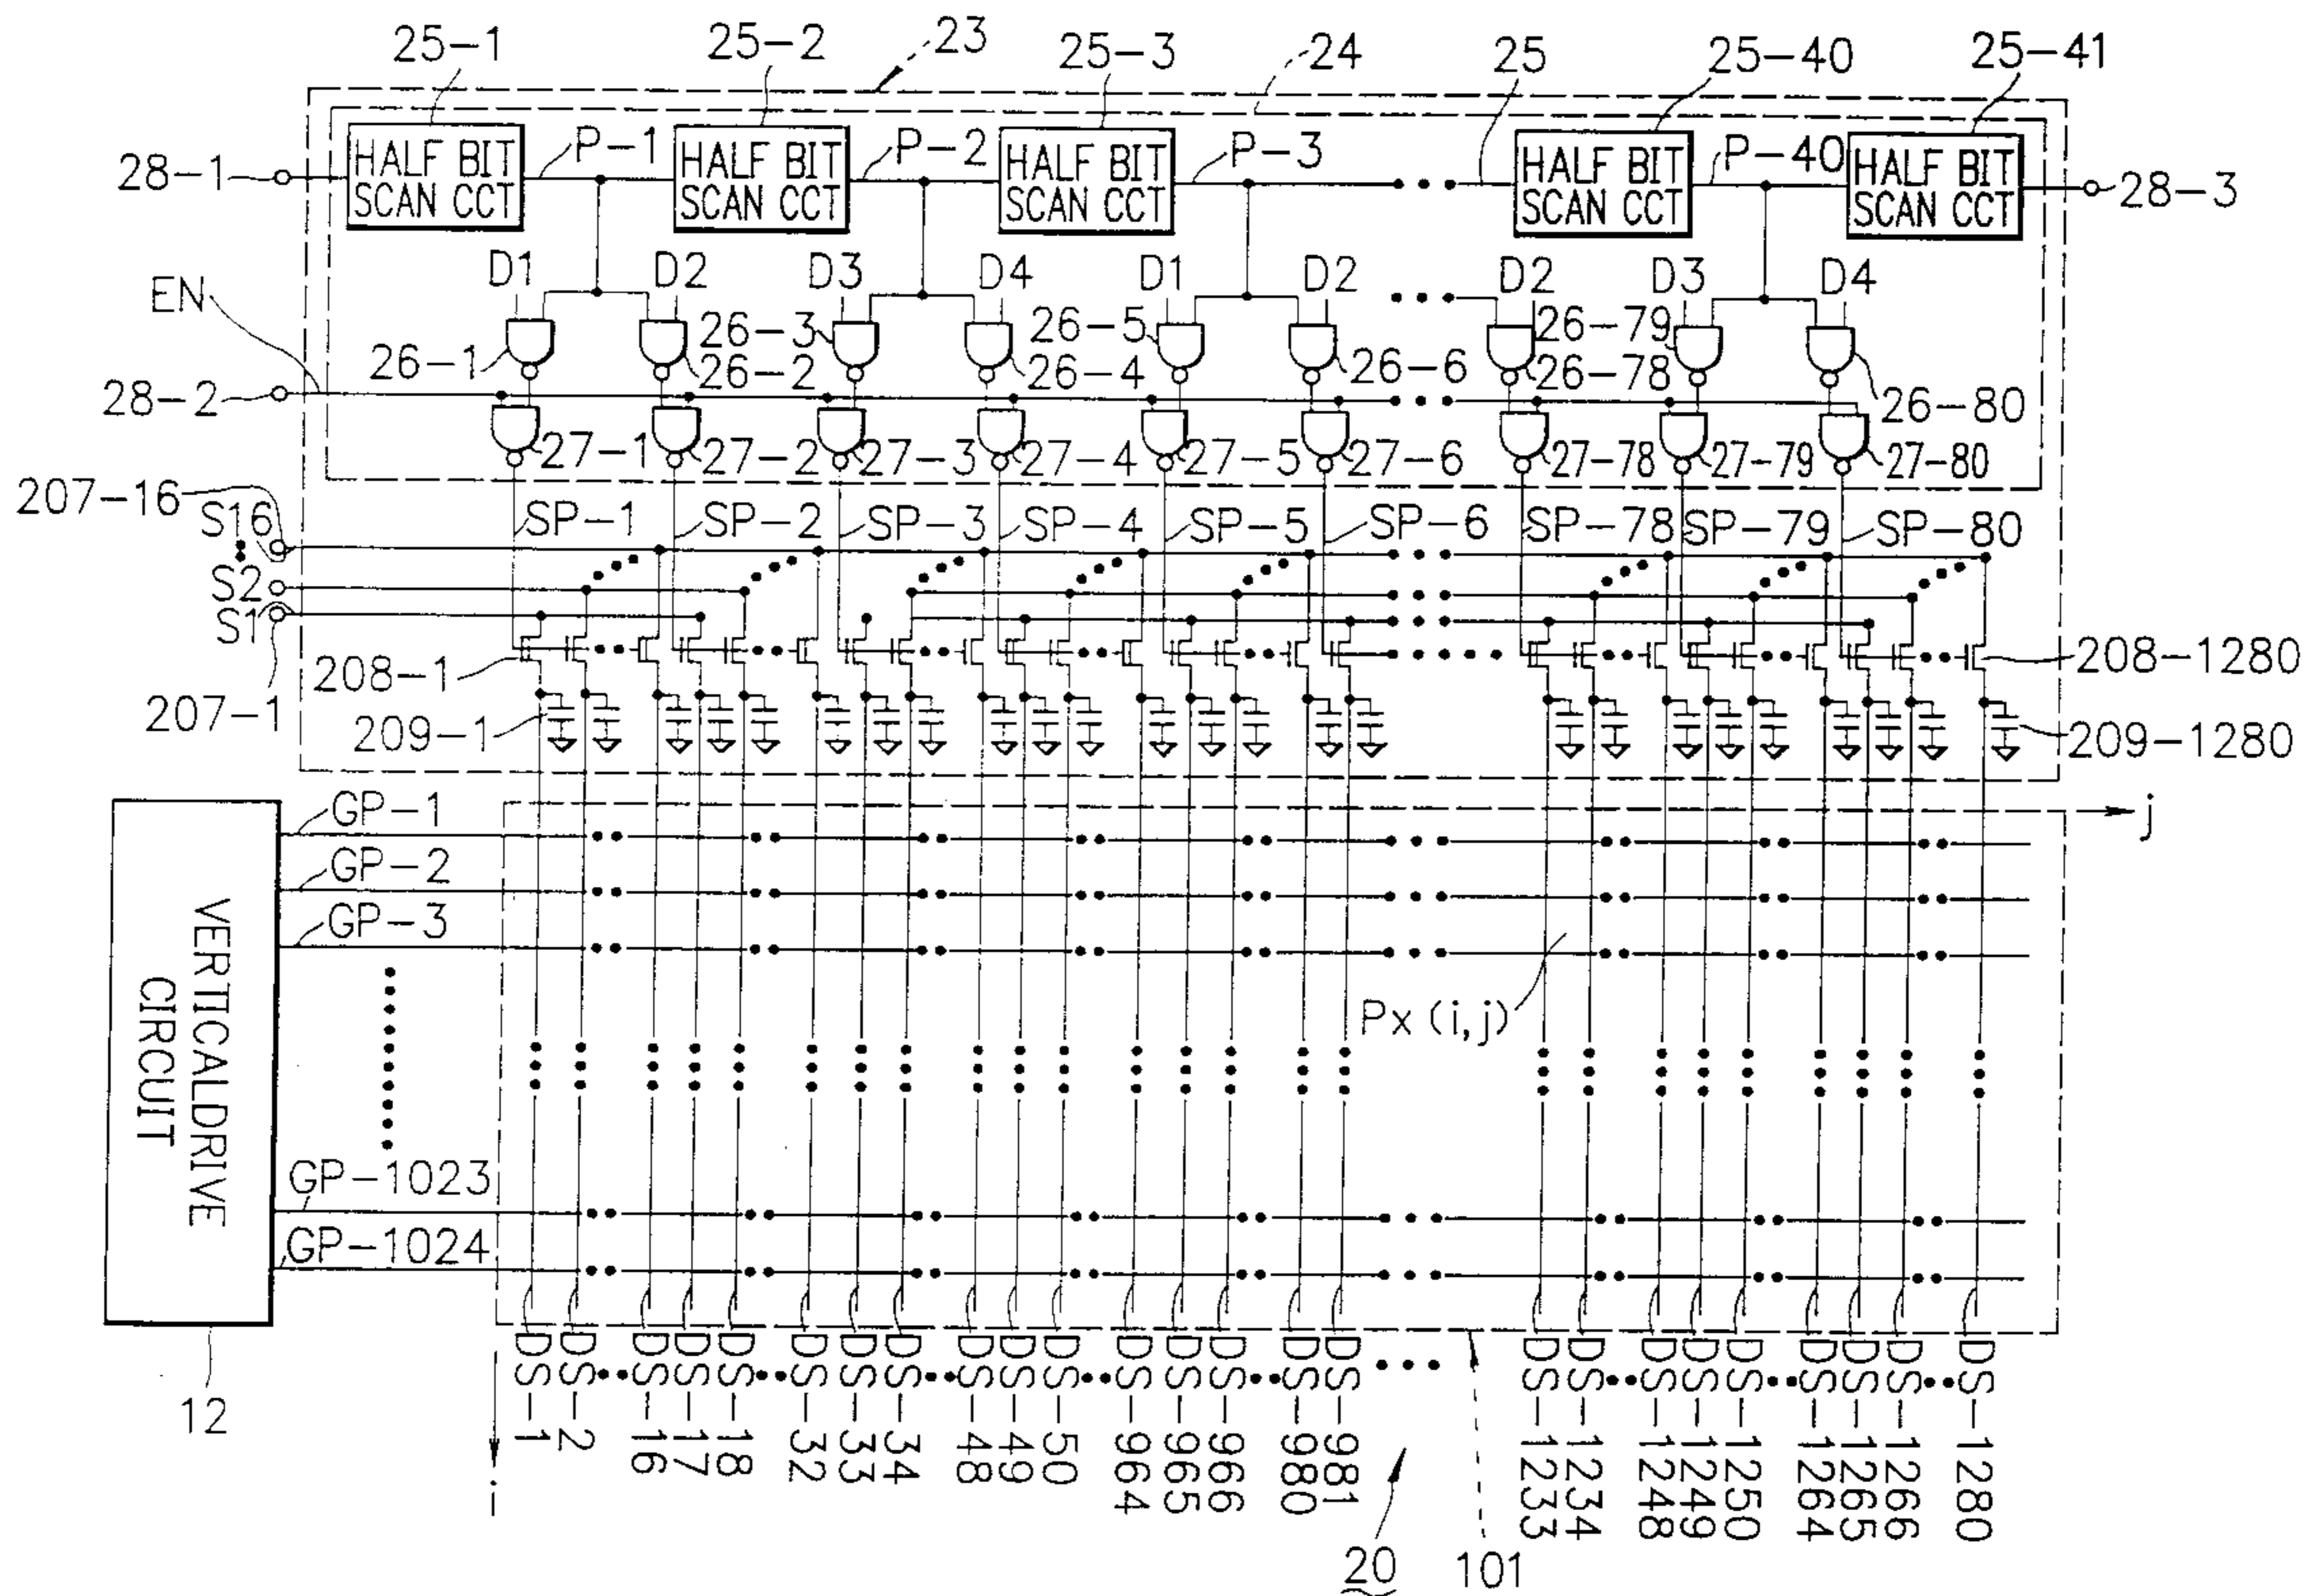 25-1
25-2
23
25-3
24
25
25-40
25-41
28-1
HALF BIT
SCAN CCT
P-1
HALF BIT
SCAN CCT
P-2
HALF BIT
SCAN CCT
P-3
HALF BIT
SCAN CCT
P-40
HALF BIT
SCAN CCT
28-3
EN
D1
D2
D3
D4
D1
D2
D2
D3
D4
26-1
26-2
26-3
26-4
26-5
26-6
26-78
26-79
26-80
28-2
27-1
27-2
27-3
27-4
27-5
27-6
27-78
27-79
27-80
207-16
S16
S2
S1
207-1
SP-1
SP-2
SP-3
SP-4
SP-5
SP-6
SP-78
SP-79
SP-80
208-1
208-1280
209-1
209-1280
GP-1
GP-2
GP-3
j
VERTICALDRIVE
CIRCUIT
Px (i,j)
GP-1023
GP-1024
12
i
DS-1
DS-2
DS-16
DS-17
DS-18
DS-32
DS-33
DS-34
DS-48
DS-49
DS-50
DS-964
DS-965
DS-966
DS-980
DS-981
DS-1233
DS-1234
DS-1248
DS-1249
DS-1250
DS-1264
DS-1265
DS-1266
DS-1280
20
101